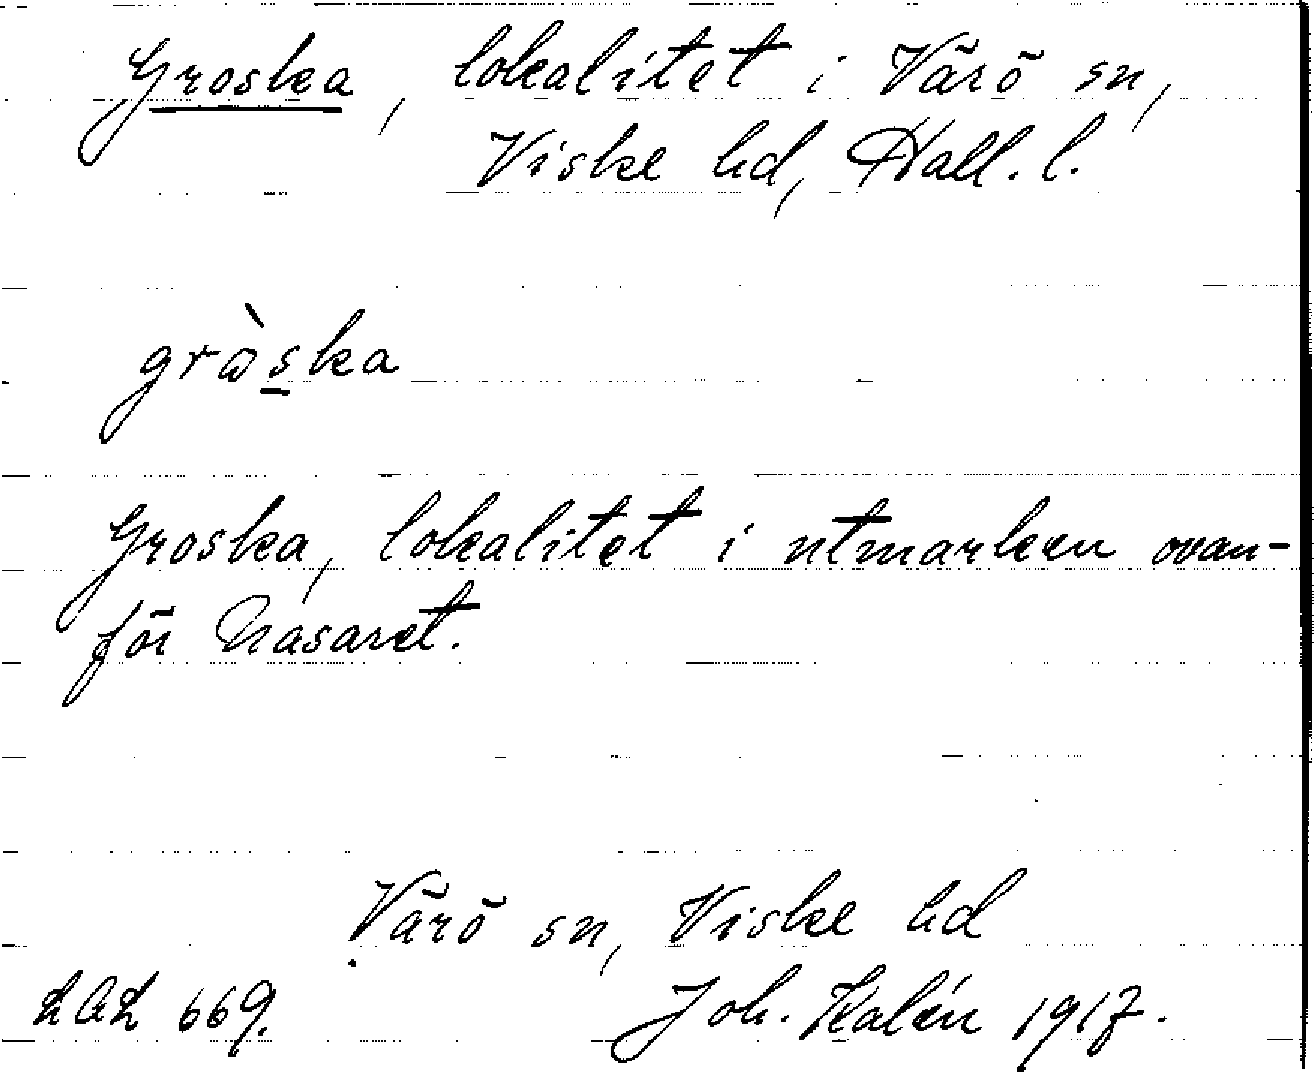 Groska, lokalitet i Värö sn,
Viske hd, Hall. l.
grɷ̀ska
Groska, lokalitet i utmarken ovan-
för Nasaret.
Värö sn, Viske hd
LAL 669.
Joh. Kalén 1917.